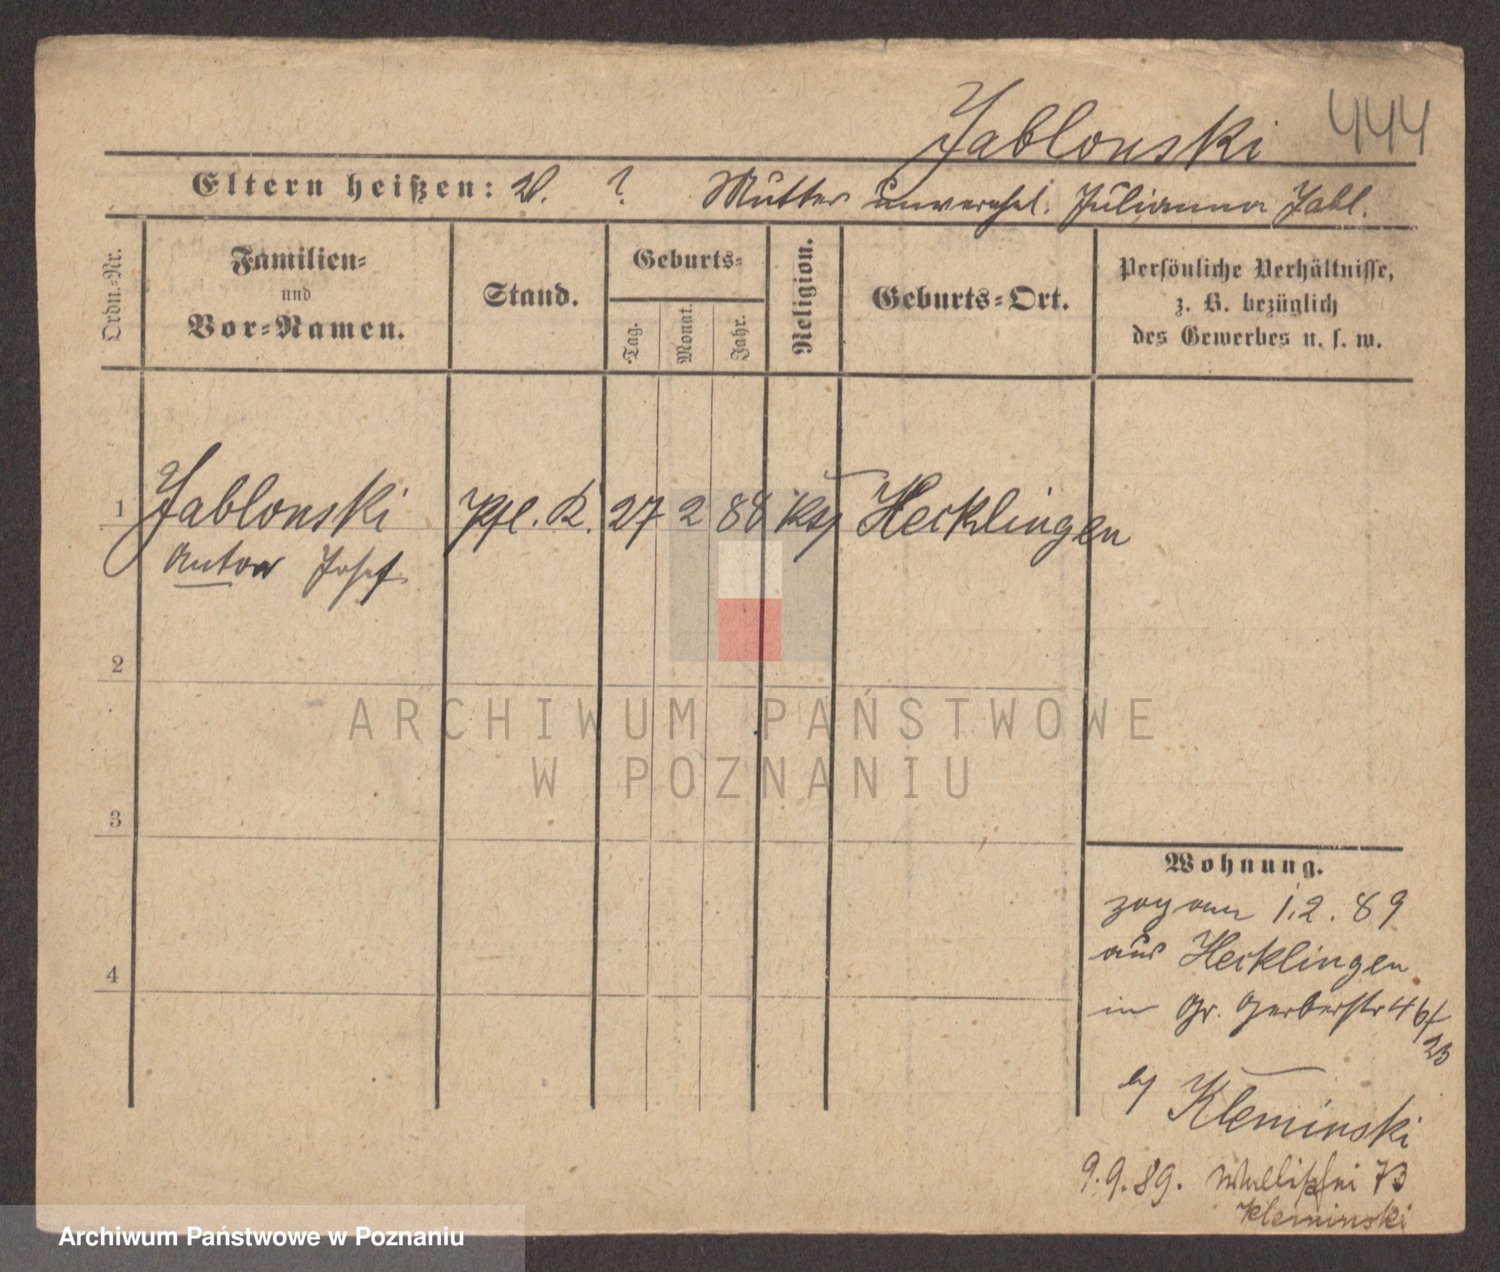 Jablonski 444
Eltern heißen: V. ? Mutter unverehel. Julianna Jabl.
Ordn.-Nr.
Familien-
und
Vor-Namen.
Stand.
Geburts-
Tag.
Monat.
Jahr.
Religion.
Geburts-Ort.
Persönliche Verhältnisse,
z. B. bezüglich
des Gewerbes u. s. w.
1 Jablonski Pfl. K. 27 2 88 kth Hecklingen
Anton Josef
2
3
4
Wohnung.
zog am 1.2.89
aus Hecklingen
in Gr. Gerberstr 46/
23
b/ Kleminski
9.9.89. Wallischei 73
Kleminski
ARCHIWUM PAŃSTWOWE
W POZNANIU
Archiwum Państwowe w Poznaniu